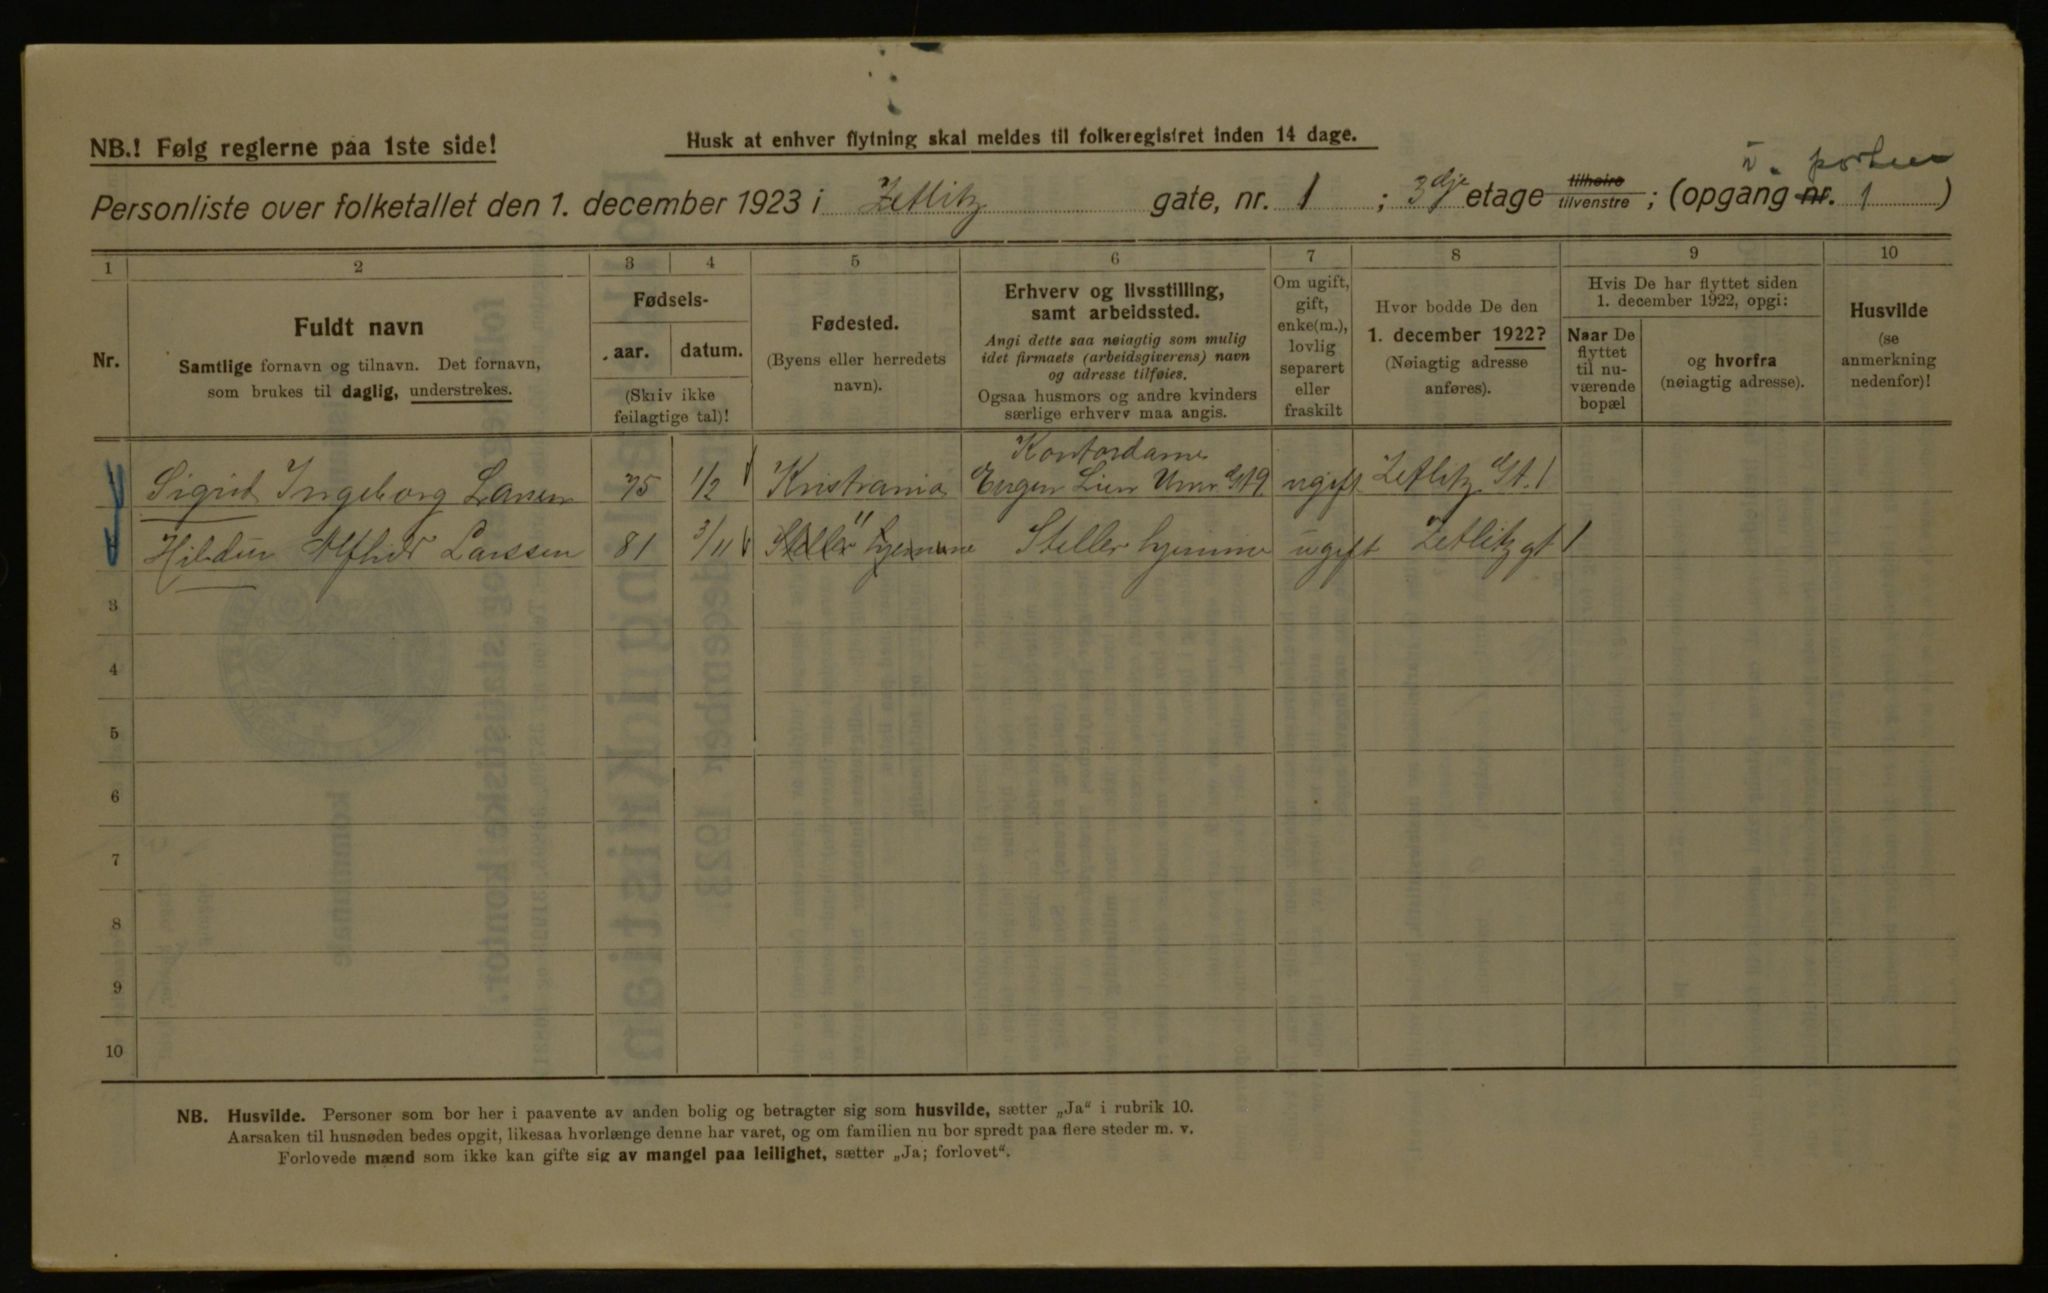 NB.! Følg reglerne paa 1ste side!
Husk at enhver flytning skal meldes til folkeregistret inden 14 dage.
porten
Personliste over folketallet den 1. december 1923 i Zetlitz gate, nr. 1 ; 3dje etage tilhøire tilvenstre ; (opgang nr. 1 )
1 2 3 4 5 6 7 8 9 10
Nr.
Fuldt navn
Samtlige fornavn og tilnavn. Det fornavn,
som brukes til daglig, understrekes.
Fødsels-
aar. datum.
(Skriv ikke
feilagtige tal)!
Fødested.
(Byens eller herredets
navn).
Erhverv og livsstilling,
samt arbeidssted.
Angi dette saa nøiagtig som mulig
idet firmaets (arbeidsgiverens) navn
og adresse tilføies.
Ogsaa husmors og andre kvinders
særlige erhverv maa angis.
Om ugift,
gift,
enke(m.),
lovlig
separert
eller
fraskilt
Hvor bodde De den
1. december 1922?
(Nøiagtig adresse
anføres).
Hvis De har flyttet siden
1. december 1922, opgi:
Naar De
flyttet
til nu-
værende
bopæl
og hvorfra
(nøiagtig adresse).
Husvilde
(se
anmerkning
nedenfor)!
Kontordame
Sigrid Ingeborg Larsen 75 1/2 Kristiania Eugen Lien ugift Zetlitz Gt. 1
Hildur Alfhild Larssen 81 3/11 Steller hjemme " Steller hjemme ugift Zetlitz gt 1
3
4
5
6
7
8
9
10
NB. Husvilde. Personer som bor her i paavente av anden bolig og betragter sig som husvilde, sætter „Ja“ i rubrik 10.
Aarsaken til husnøden bedes opgit, likesaa hvorlænge denne har varet, og om familien nu bor spredt paa flere steder m. v.
Forlovede mænd som ikke kan gifte sig av mangel paa leilighet, sætter „Ja; forlovet“.